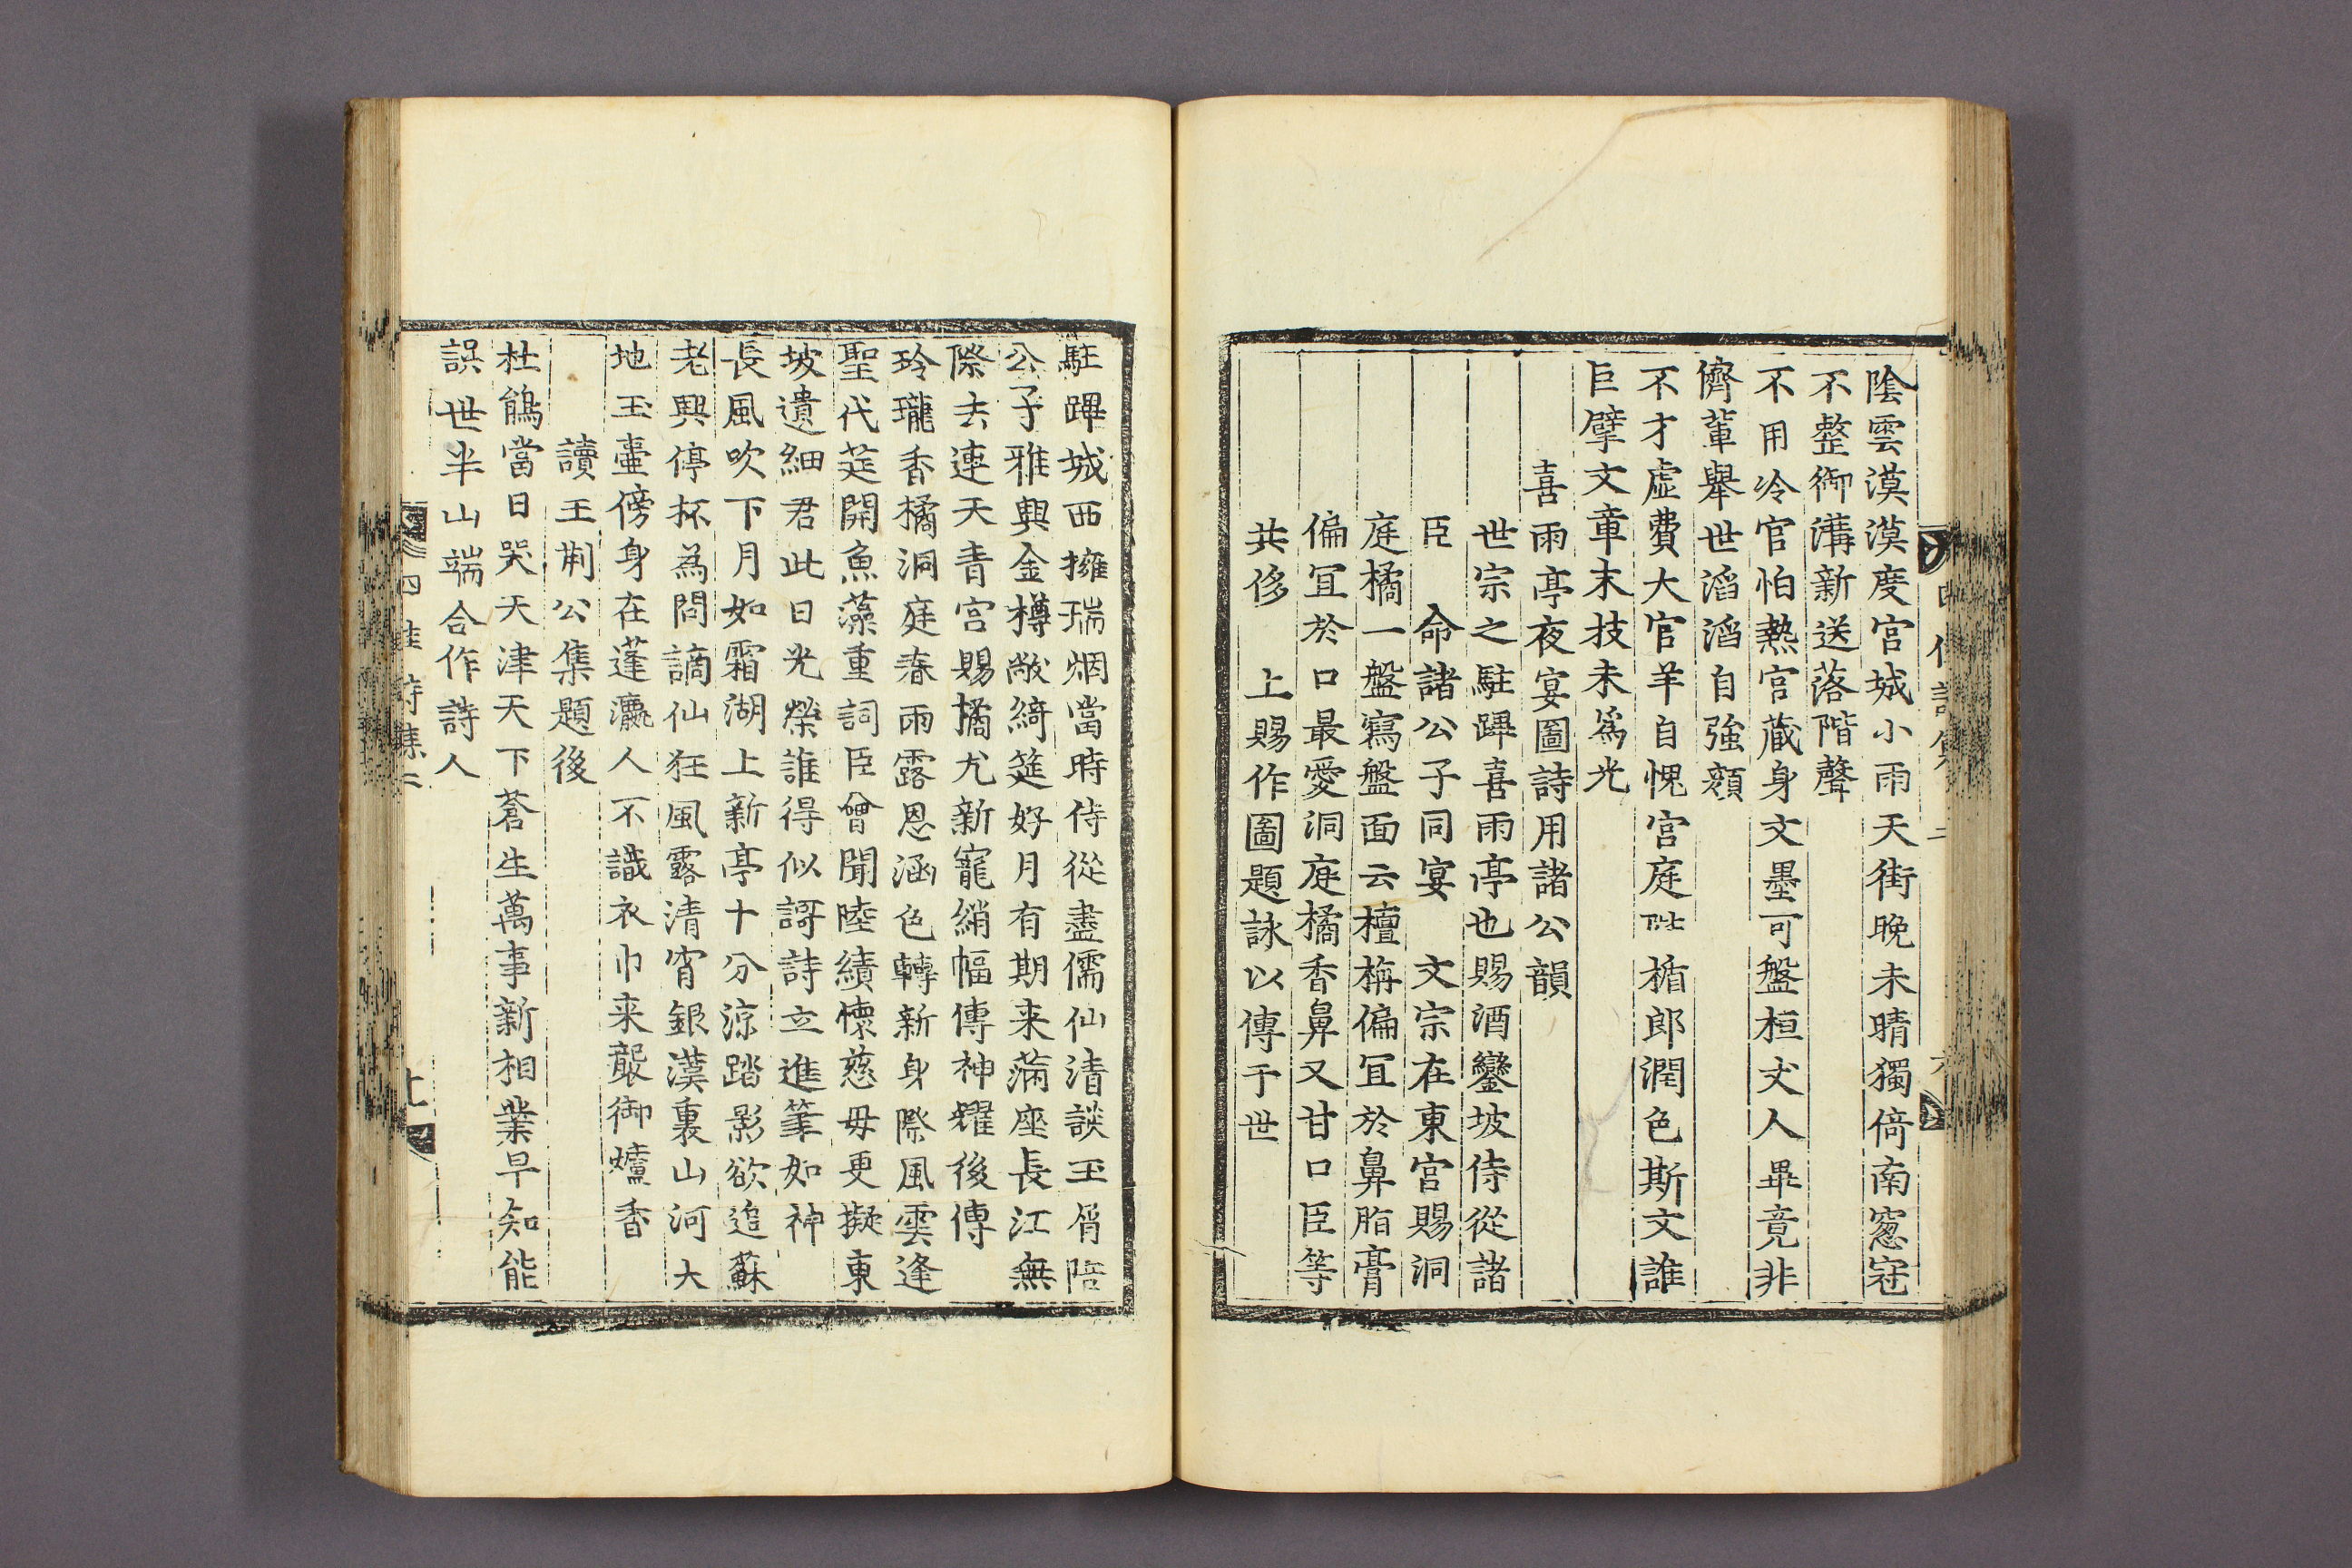 陰雲漠漠度宮城小雨天街晚未晴獨倚南窓冠
不整御溝新送落階聲
不用冷官怕熱官蔵身文墨可盤桓丈人畢竟非
儕輩擧世滔滔自強顔
不才虛費大官羊自愧宮庭陛楯郎潤色斯文誰
巨擘文章末技未爲光
喜雨亭夜宴圖詩用諸公韻
世宗之駐蹕喜雨亭也賜酒鑾坡侍從諸
臣 命諸公子同宴 文宗在東宮賜洞
庭橘一盤寫盤面云檀栴偏冝於鼻脂膏
偏冝於口最愛洞庭橘香鼻又甘口臣等
共侈 上賜作圖題詠以傳于世
駐蹕城西擁瑞烟當時侍從盡儒仙清談玉屑陪
公子雅興金樽敞綺筵好月有期来滿座長江無
際去連天青宮賜橘尤新寵綃幅傳神耀後傳
玲瓏香橘洞庭春雨露恩涵色轉新身際風雲逢
聖代莚開魚藻重詞臣曾聞陸績懷慈母更擬東
坡遺細君此日光榮誰得似謌詩立進筆如神
長風吹下月如霜湖上新亭十分涼踏影欲追蘇
老興停杯為問謫仙狂風露清宵銀漢裏山河大
地玉壷傍身在蓬瀛人不識衣巾来襲御爐香
讀王荆公集題後
杜鵑當日哭天津天下蒼生萬事新相業早知能
誤世半山端合作詩人